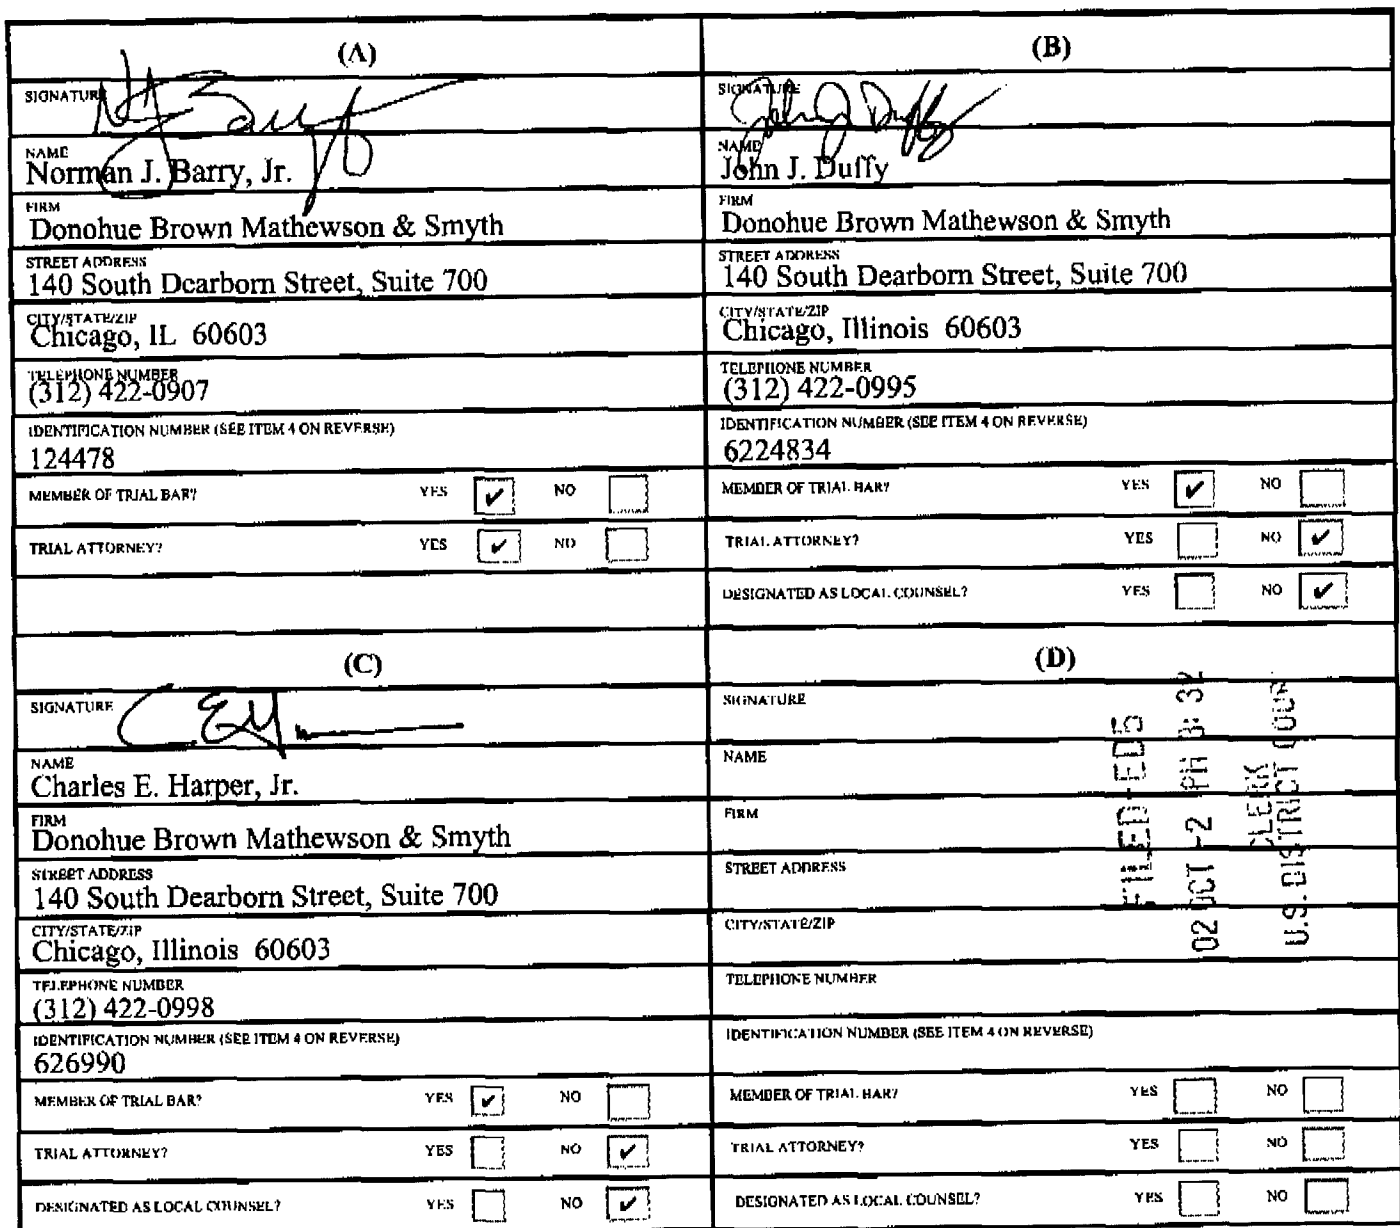 (A)
SIGNATURE
NAME
Norman J. Barry, Jr.
FIRM
Donohue Brown Mathewson & Smyth
STREET ADDRESS
140 South Dearborn Street, Suite 700
CITY/STATE/ZIP
Chicago, IL 60603
TELEPHONE NUMBER
(312) 422-0907
IDENTIFICATION NUMBER (SEE ITEM 4 ON REVERSE)
124478
MEMBER OF TRIAL BAR? YES ✔ NO
TRIAL ATTORNEY? YES ✔ NO
(B)
SIGNATURE
John J Duffy
NAME
John J. Duffy
FIRM
Donohue Brown Mathewson & Smyth
STREET ADDRESS
140 South Dearborn Street, Suite 700
CITY/STATE/ZIP
Chicago, Illinois 60603
TELEPHONE NUMBER
(312) 422-0995
IDENTIFICATION NUMBER (SEE ITEM 4 ON REVERSE)
6224834
MEMBER OF TRIAL BAR? YES ✔ NO
TRIAL ATTORNEY? YES NO ✔
DESIGNATED AS LOCAL COUNSEL? YES NO ✔
(C)
SIGNATURE
NAME
Charles E. Harper, Jr.
FIRM
Donohue Brown Mathewson & Smyth
STREET ADDRESS
140 South Dearborn Street, Suite 700
CITY/STATE/ZIP
Chicago, Illinois 60603
TELEPHONE NUMBER
(312) 422-0998
IDENTIFICATION NUMBER (SEE ITEM 4 ON REVERSE)
626990
MEMBER OF TRIAL BAR? YES ✔ NO
TRIAL ATTORNEY? YES NO ✔
DESIGNATED AS LOCAL COUNSEL? YES NO ✔
(D)
SIGNATURE
NAME
FIRM
STREET ADDRESS
CITY/STATE/ZIP
TELEPHONE NUMBER
IDENTIFICATION NUMBER (SEE ITEM 4 ON REVERSE)
MEMBER OF TRIAL BAR? YES NO
TRIAL ATTORNEY? YES NO
DESIGNATED AS LOCAL COUNSEL? YES NO
FILED-ED5
02 OCT -2 PM 3:32
CLERK
U.S. DISTRICT COUR